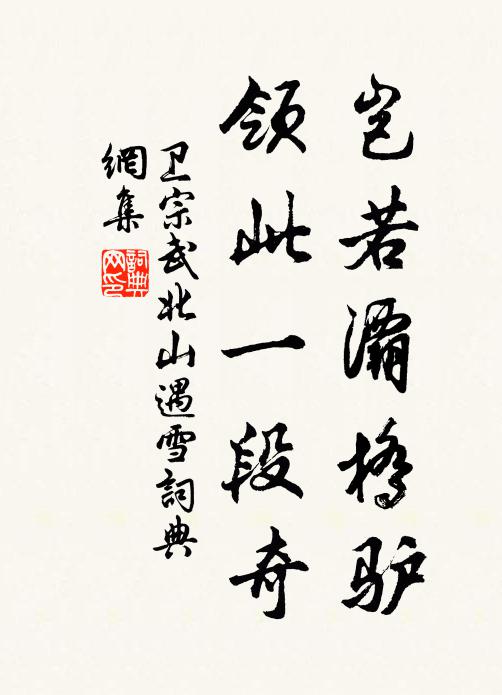 岂若灞桥驴
领此一段奇
卫宗武北山遇雪詞典
網集
詞典
网印